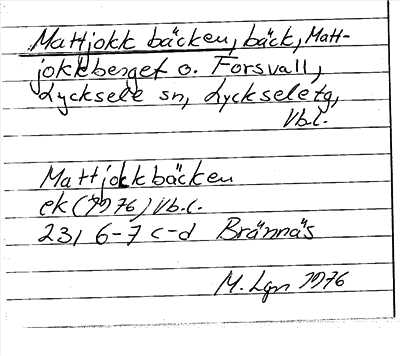 Mattjokkbäcken, bäck, Matt-
jokkberget o. Forsvall,
Lycksele sn, Lycksele tg,
Vb.l.
Mattjokkbäcken
ek (1976) Vb.l.
23I 6-7 c-d Brännäs
M. Lgn 1976